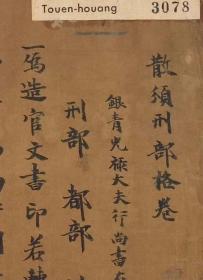 Touen-houang
3078
散頒刑部格卷
銀青光祿大夫行尚書右
刑部 都部
一 偽造官文書印若轉